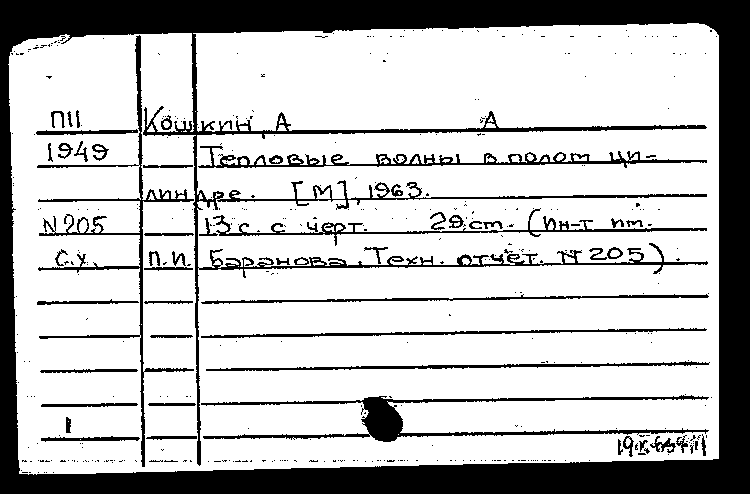 П11 Кошкин, А А
1949 Тепловые волны в полом ци-
линдре. [М], 1963.
N205 13 с. с черт. 29 см. (Ин-т им.
С.х. П.И. Баранова. Техн. отчёт. N 205).
1